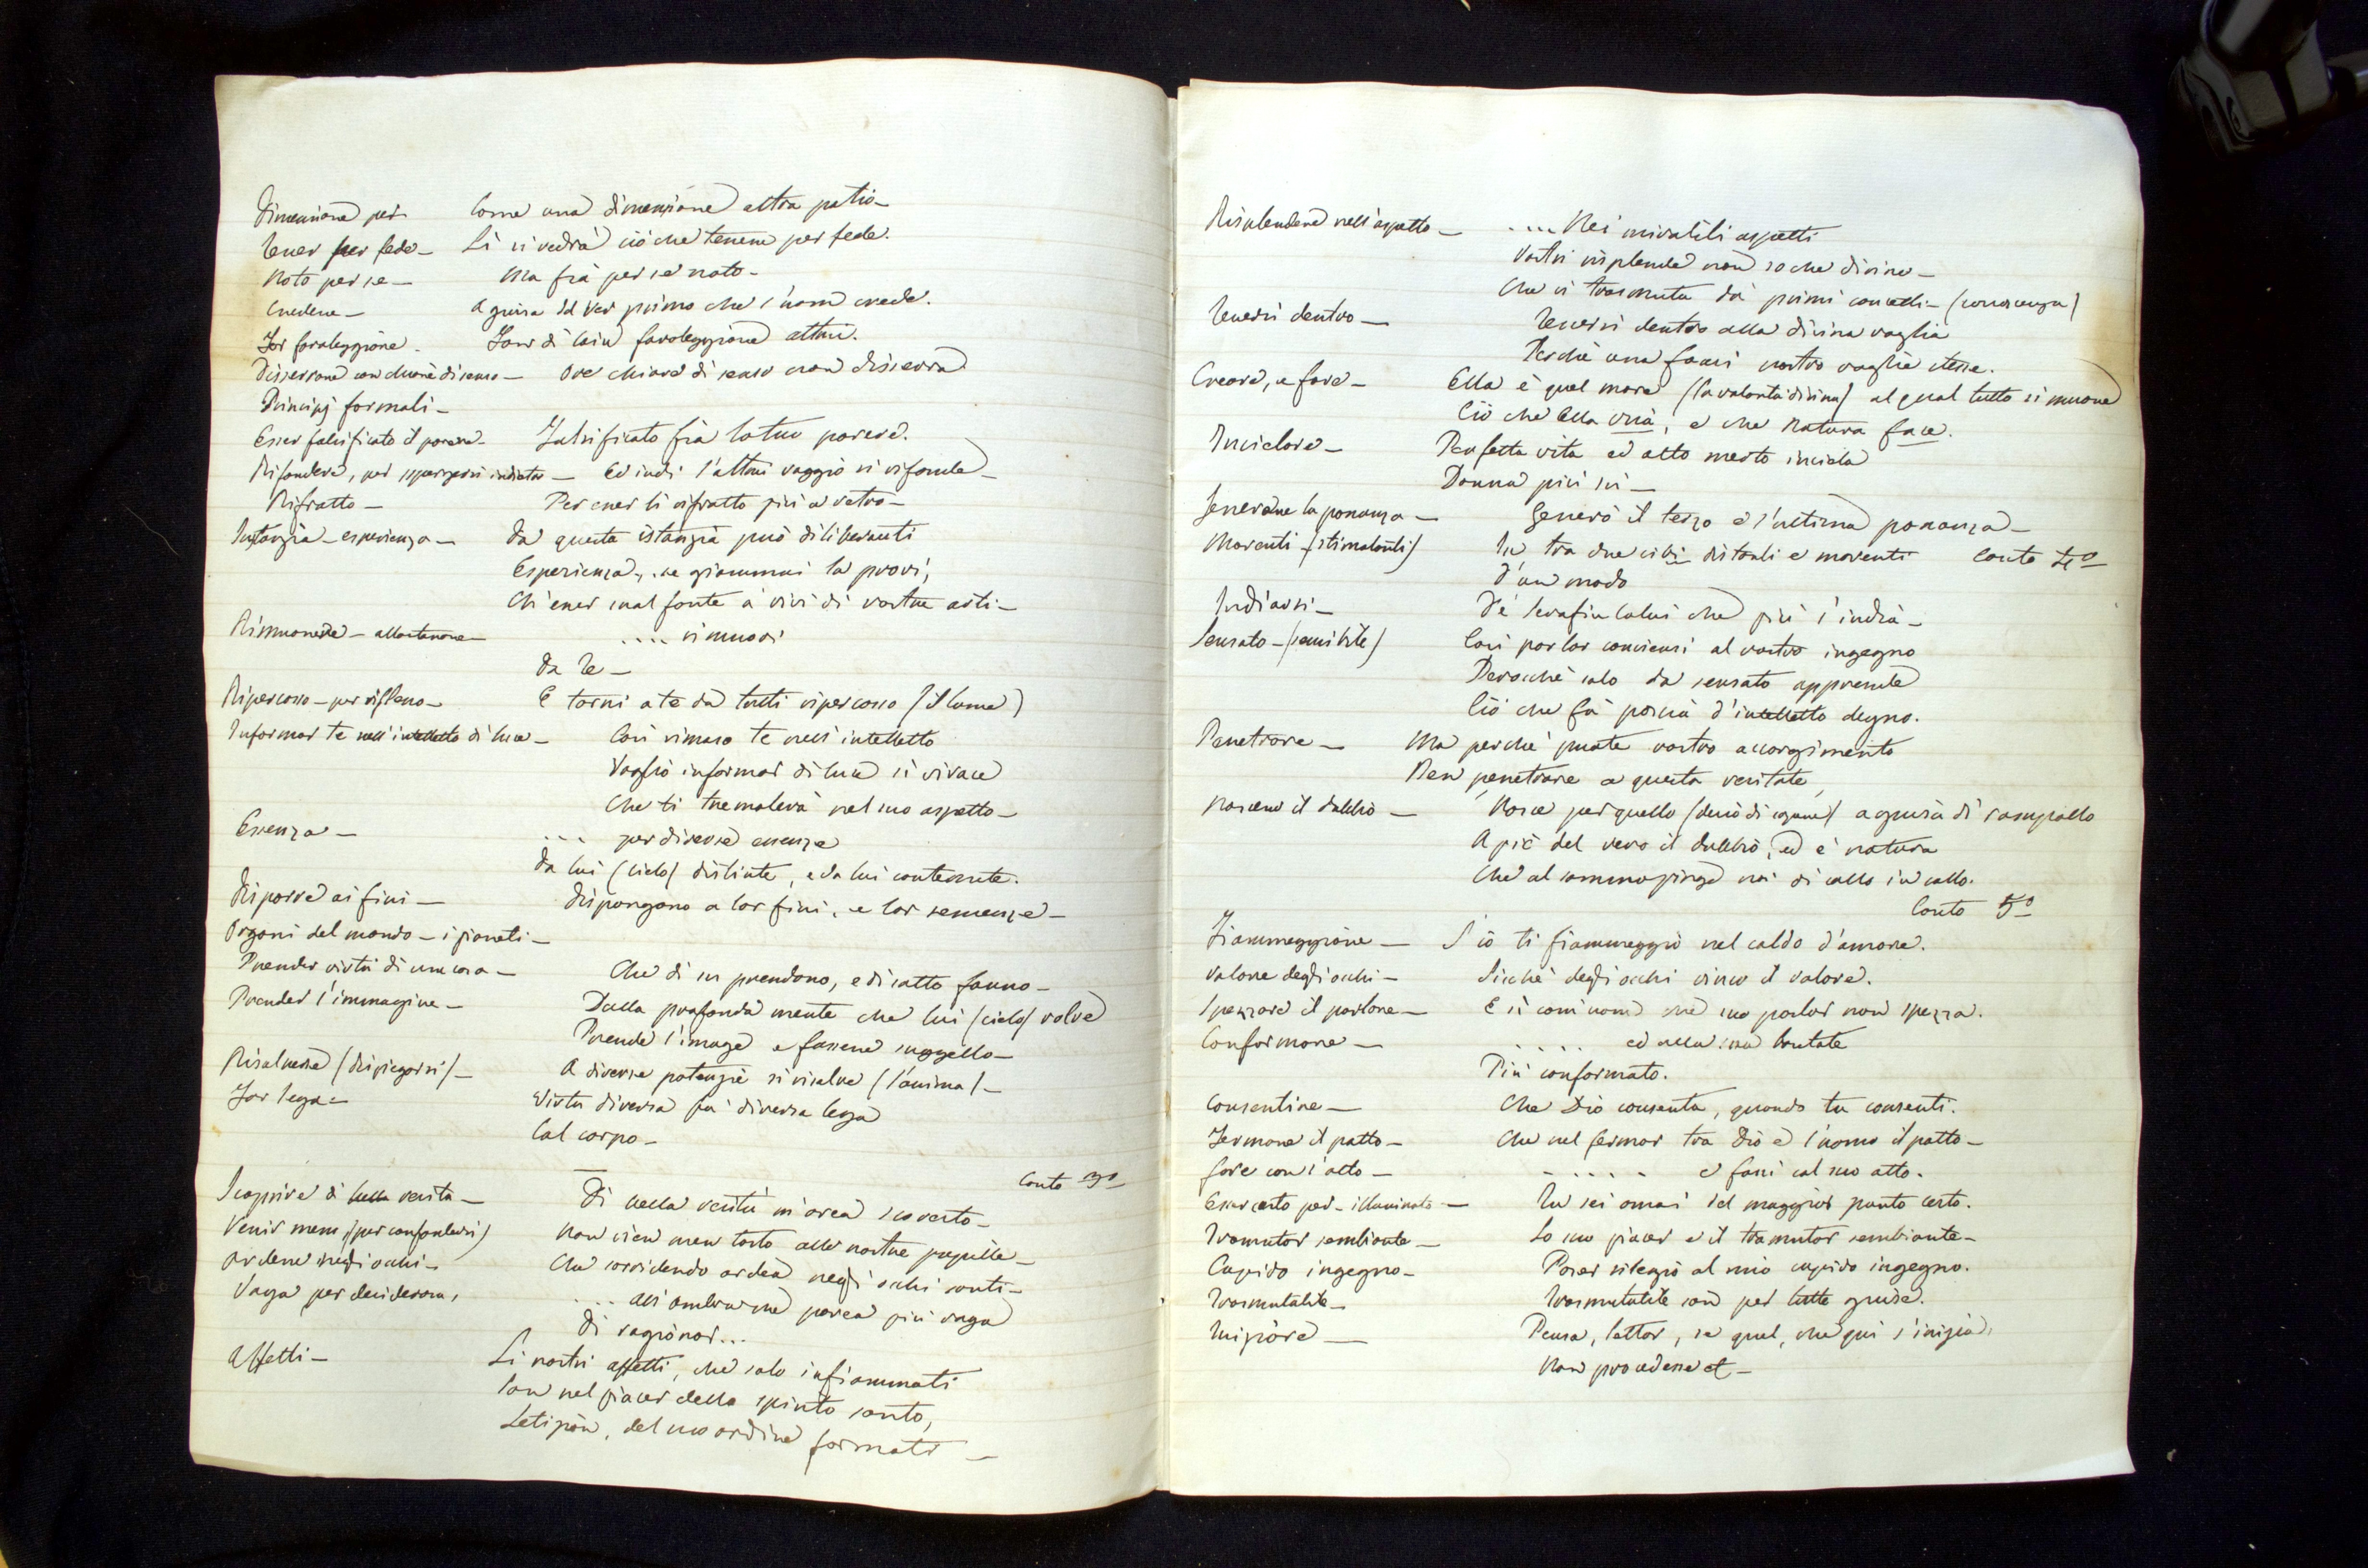 Dimensione per Come una dimenzione altra patio—
Tener per fede— Lì si vedrà ciò che tenem per fede.
Noto per se— Ma fia per sè noto—
Credere— A guisa del ver primo che l'uom crede.
Far favoleggiare— Fan di Cain favoleggiare altrui.
Disserrare con chiave di senso— Ove chiave di senso non diserra
Principj formali—
Esser falsificato il parere— Falsificato fia lo tuo parere.
Rifondere, per spargersi indietro— Ed indi l'altrui raggio si rifonde—
Rifratto— Per esser lì rifratto più a retro—
Instanzia—esperienza— Da questa istanzia può diliberarti
Esperienza, se giammai la provi,
Ch'esser suol fonte a' rivi di vostre arti—
Rimuovere—allontanare— .... rimuovi
Da te—
Ripercosso—per riflesso— E torni a te da tutti ripercosso (il lume)
Informar te nell'intelletto di luce— Così rimaso te nell'intelletto
Voglio informar di luce sì vivace
Che ti tremolerà nel suo aspetto—
Essenza— ... per diverse essenze
Da lui (cielo) distinte, e da lui contenute.
Disporre ai fini— Dispongono a lor fini, e lor semenze—
Organi del mondo—i pianeti—
Prender virtù di una cosa— Che di su prendono, e di sotto fanno—
Prender l'immagine— Dalla profonda mente che lui (cielo) volve
Prende l'image e fassene suggello—
Risolvere (dispiegarsi)— A diverse potenzie si risolve (l'anima)—
Far lega— Virtù diversa fa diversa lega
Col corpo—
Canto 3º
Scoprire di bella verità— Di bella verità m'avea scoverto—
Venir meno (per confondersi) Non vien men tosto alle nostre pupille—
Ardere negli occhi— Che sorridendo ardea negli occhi santi—
Vaga per desiderosa, ... all'ombra che parea più vaga
Di ragionar...
Affetti— Li nostri affetti, che solo infiammati
Son nel piacer dello spirito santo,
Letizian, del suo ordine formati—
Risplendere nell'aspetto— .... Nei mirabili aspetti
Vostri risplende non so che divino—
Che vi trasmuta da' primi concetti—(conoscenza)
Tenersi dentro— Tenersi dentro alla divina voglia
Perchè una fansi nostre voglie stesse.
Creare, e fare— Ella è quel mare (la volontà divina) al qual tutto si muove
Ciò che ella cria, e che natura face.
Incielare— Perfetta vita ed alto merto inciela
Donna più su—
Generare la possanza— Generò il terzo e l'ultima possanza—
Moventi—(stimolanti) In tra due cibi distanti e moventi Canto 4º
D'un modo
Indiarsi— De' Serafin colui che più s'india—
Sensato—(sensibile) Così parlar conviensi al vostro ingegno
Perocchè solo da sensato apprende
Ciò che fa poscia d'intelletto degno.
Penetrare— Ma perchè puote vostro accorgimento
Ben penetrare a questa veritate,
Nascere il dubbio— Nasce per quello (desio di sapere) a guisa di rampollo
A piè del vero il dubbio, ed è natura
Che al sommo pinge noi di collo in collo.
Canto 5º
Fiammeggiare— S'io ti fiammeggio nel caldo d'amore.
Valore degli occhi— Sicchè degli occhi vinco il valore.
Spezzare il parlare— E sì com'uom che suo parlar non spezza.
Conformare— ..... ed alla sua bontate
Più conformato.
Consentire— Che Dio consenta, quando tu consenti.
Fermare il patto— Che nel fermar tra Dio e l'uomo il patto—
Fare con l'atto— ..... e fassi col suo atto.
Esser certo per—illuminato— Tu sei omai del maggior punto certo.
Tramutar sembiante— Lo suo piacer e il tramutar sembiante—
Cupido ingegno— Poser silenzio al mio cupido ingegno.
Trasmutabile— Trasmutabile son per tutte guise.
Iniziare— Pensa, lettor, se quel, che qui s'inizia,
Non procedesse et—